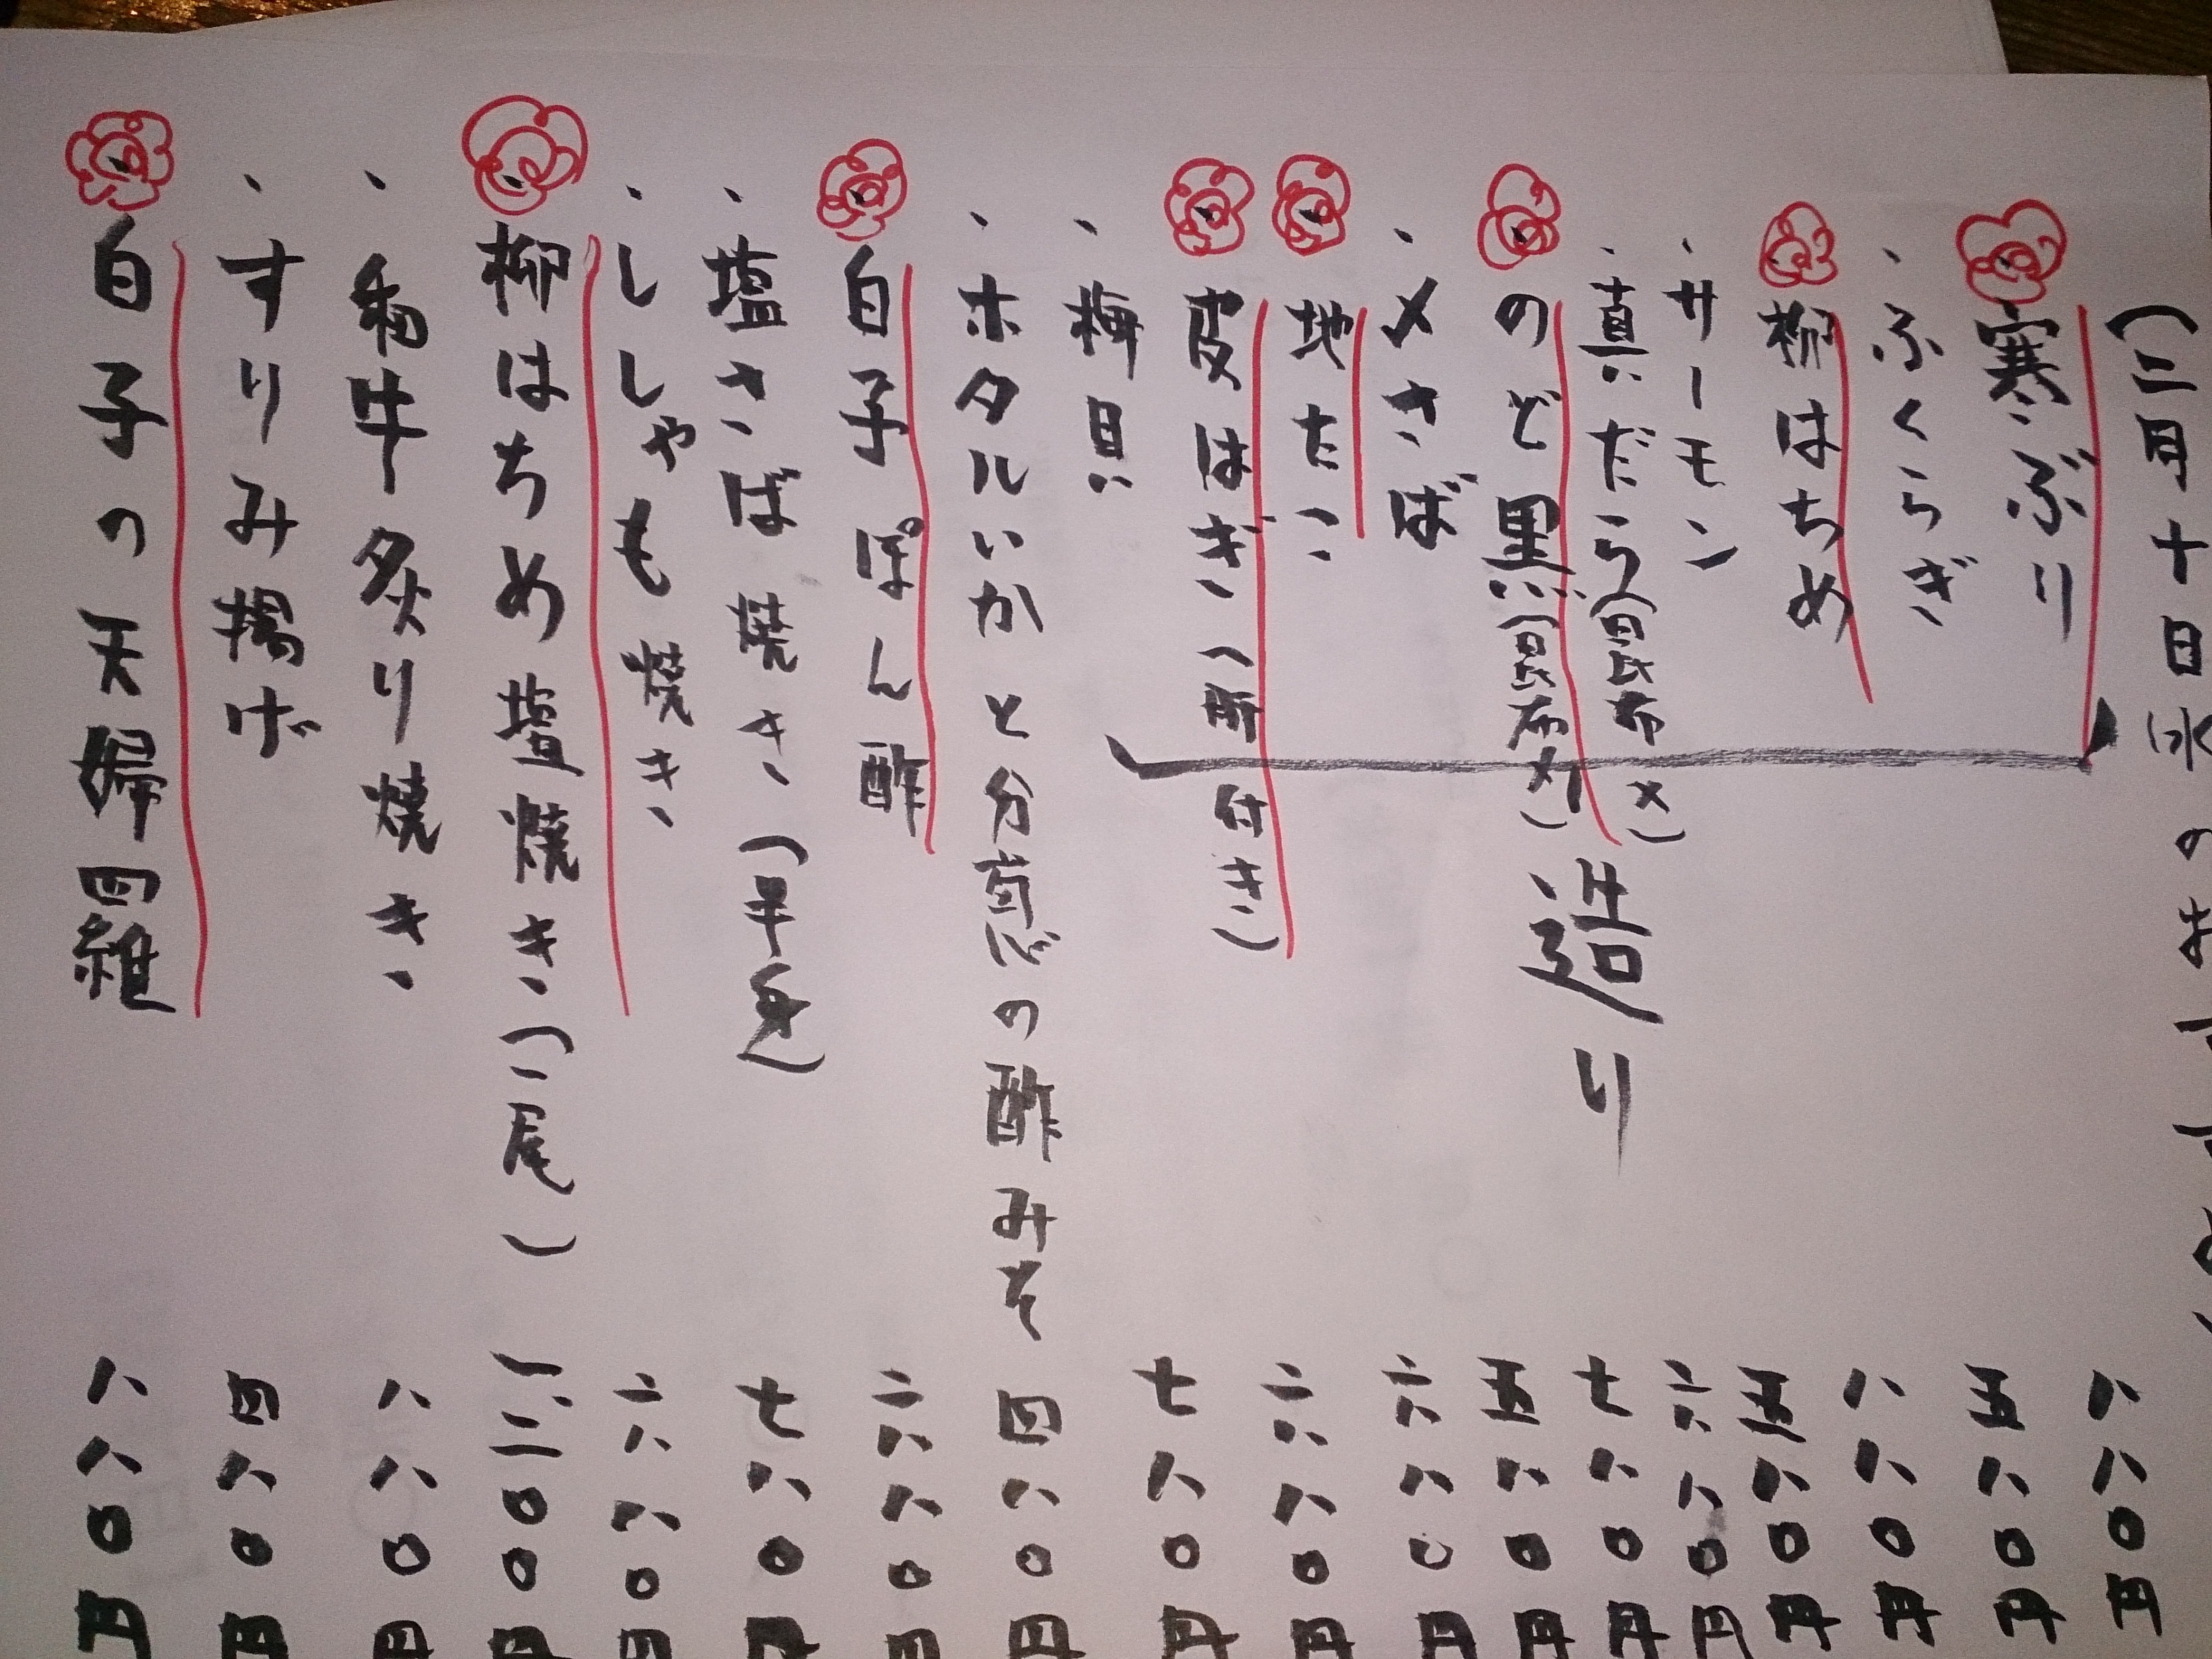 (二月十日水のおすすめ
寒ぶり 八八〇円
ふくらぎ 五八〇円
柳はちめ 八八〇円
サーモン 五八〇円
真だら(昆布〆) 六八〇円
のど黒(昆布〆) 七八〇円
〆さば 五八〇円
地たこ 六八〇円
皮はぎ(肝付き) 六八〇円
造り
梅貝 七八〇円
ホタルいかと分葱の酢みそ 四八〇円
白子ぽん酢 六八〇円
塩さば焼き(半身) 七八〇円
ししゃも焼き 六八〇円
柳はちめ塩焼き(二尾) 一、二〇〇円
和牛炙り焼き 八八〇円
すりみ揚げ 四八〇円
白子の天婦羅 八八〇円